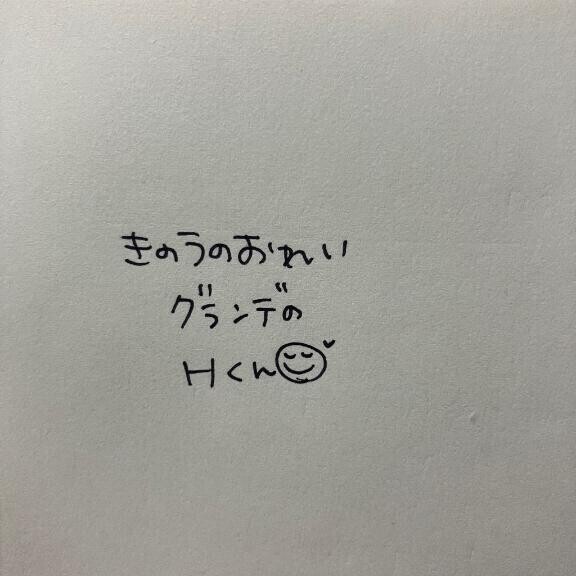 きのうのおれい
グランデの
Hくん